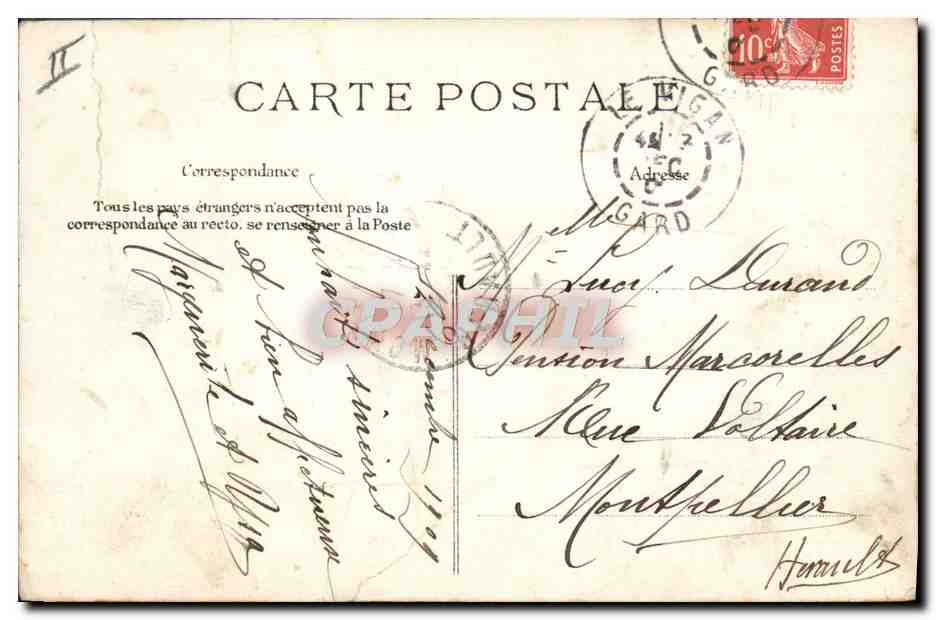 II
CARTE POSTALE
10c
POSTES
GARD
LE VIGAN
GARD
Correspondance
Adresse
Tous les pays étrangers n'acceptent pas la
correspondance au recto. se renseigner à la Poste
Mlle Lucy Durand
Pension Marcorelles
Rue Voltaire
Montpellier
Herault
1909
Souhaits sincères
et bien affectueuse
Marguerite et
CPAPHIL